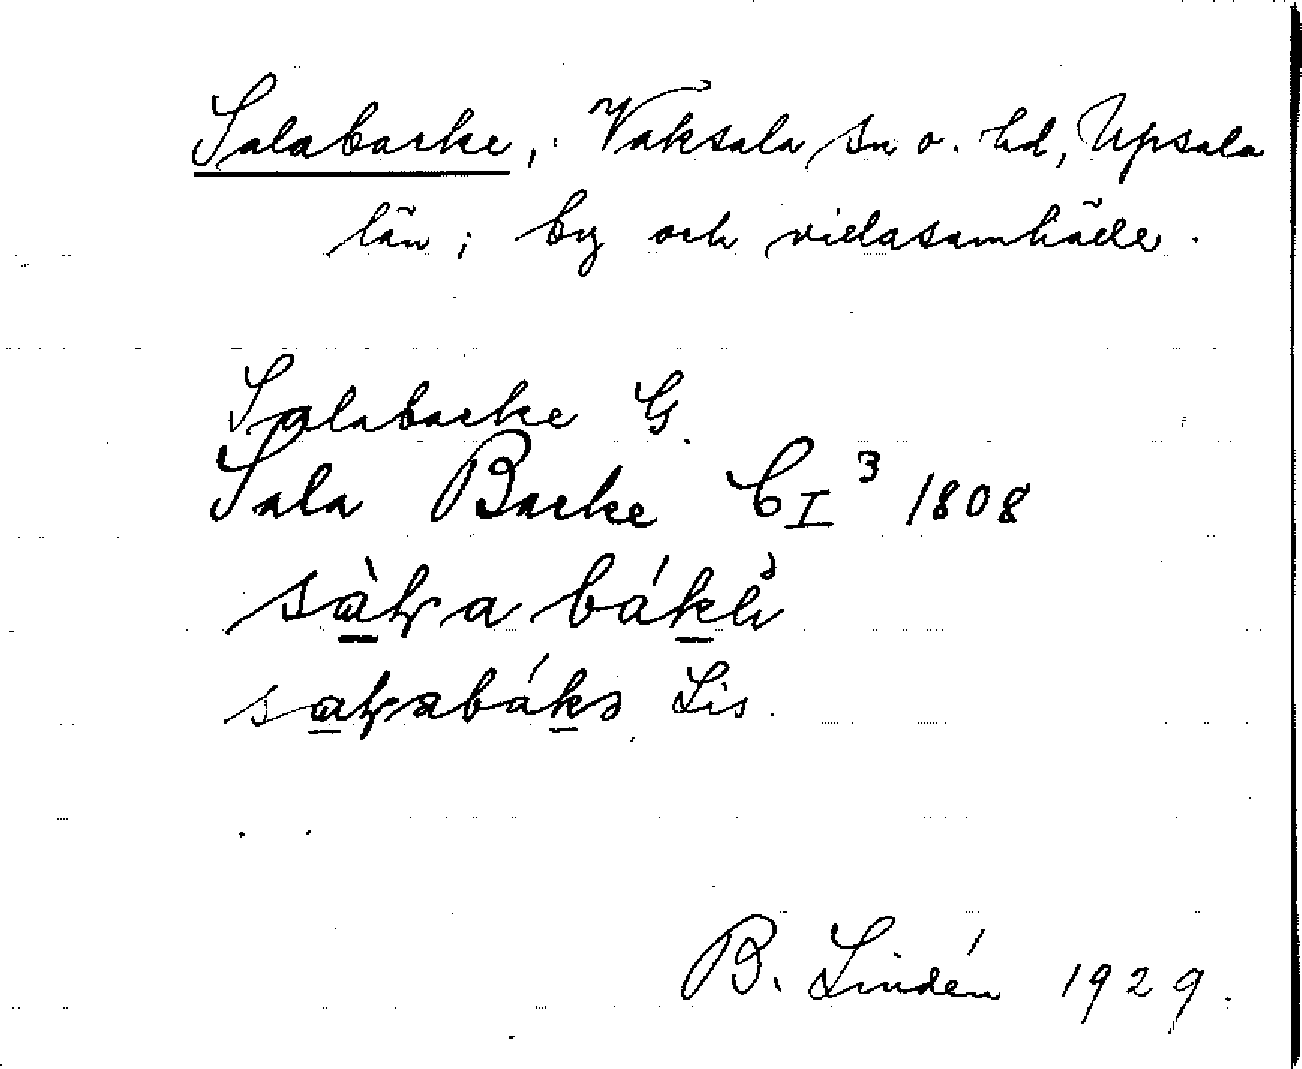 Salabacke, Vaksala sn o. hd, Upsala
län; by och villasamhälle.
Salabacke G.
Sala Backe CI³ 1808
Lis.
B. Lindén 1929.